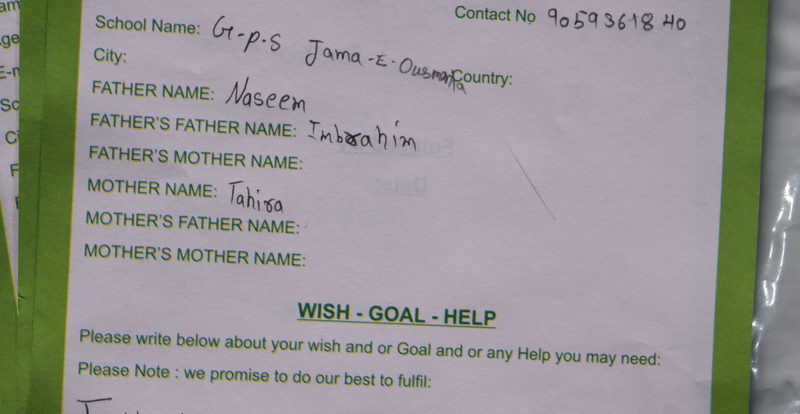 am
ge
E-m
Sc
Ci
F
School Name: G-P-S Jama-E-Ousmania
Contact No 9059361840
City:
Country:
FATHER NAME: Naseem
FATHER'S FATHER NAME: Imbrahim
FATHER'S MOTHER NAME:
MOTHER NAME: Tahira
MOTHER'S FATHER NAME:
MOTHER'S MOTHER NAME:
WISH - GOAL - HELP
Please write below about your wish and or Goal and or any Help you may need:
Please Note : we promise to do our best to fulfil: